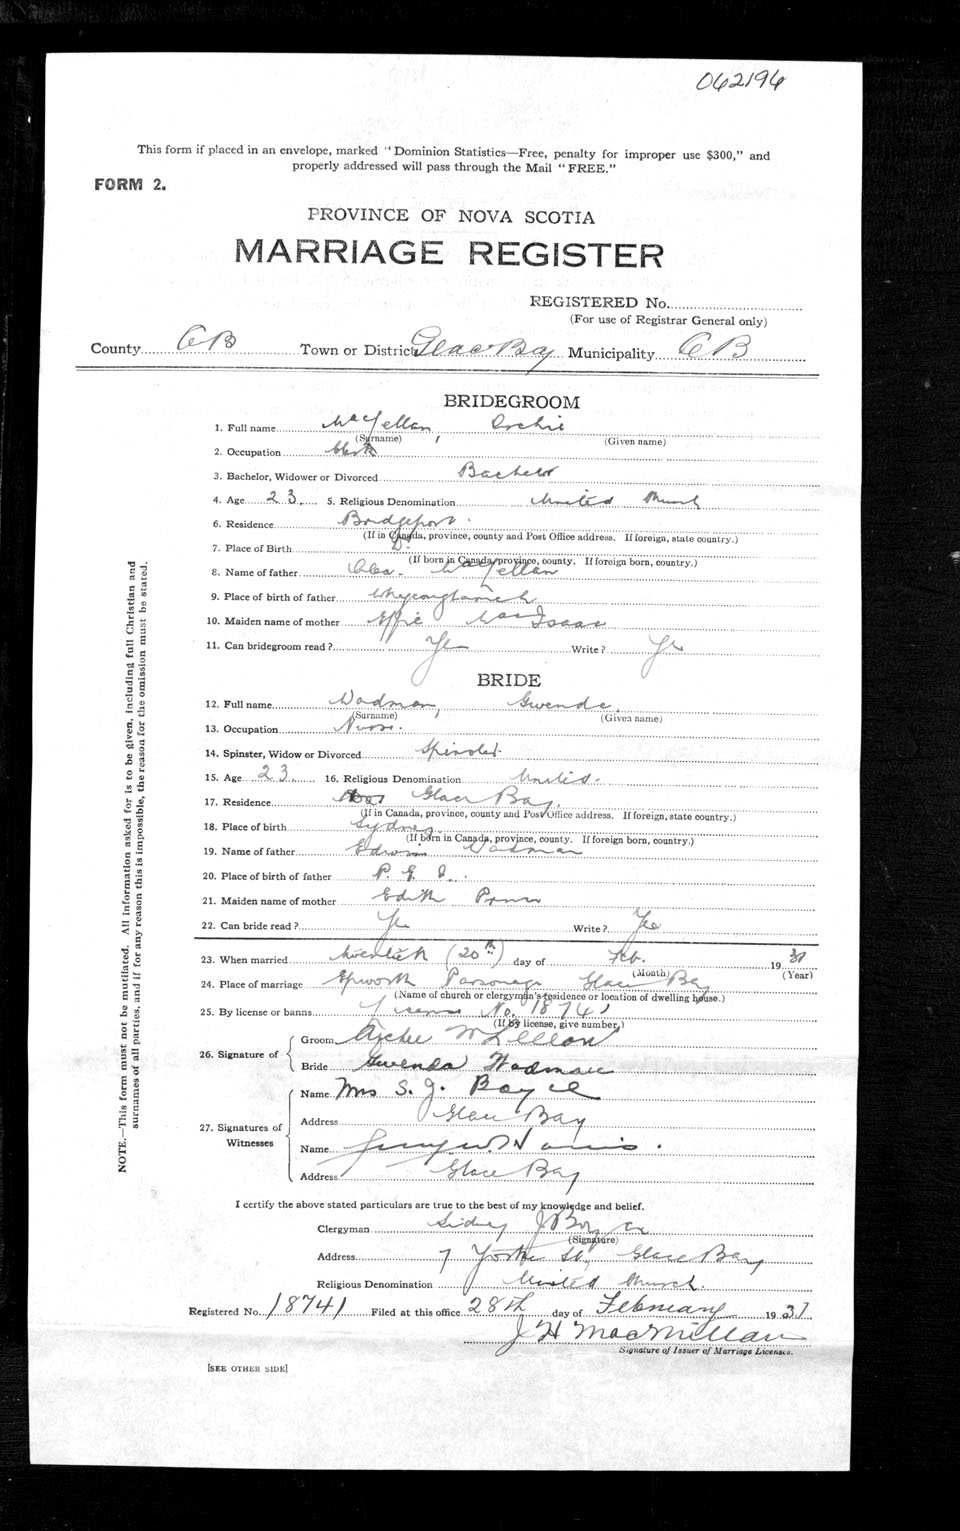 062196
This form if placed in an envelope, marked "Dominion Statistics—Free, penalty for improper use $300," and
properly addressed will pass through the Mail "FREE."
FORM 2.
PROVINCE OF NOVA SCOTIA
MARRIAGE REGISTER
REGISTERED No.
(For use of Registrar General only)
County CB Town or District Glace Bay Municipality CB
BRIDEGROOM
1. Full name MacLellan, Archie
(Surname) (Given name)
2. Occupation Clerk
3. Bachelor, Widower or Divorced Bachelor
4. Age 23 5. Religious Denomination United Church
6. Residence Bridgeport
(If in Canada, province, county and Post Office address. If foreign, state country.)
7. Place of Birth
(If born in Canada, province, county. If foreign born, country.)
8. Name of father MacLellan
9. Place of birth of father Whycocomagh
10. Maiden name of mother Effie MacIsaac
11. Can bridegroom read? Yes Write? Yes
BRIDE
12. Full name Wadman, Gwenda
(Surname) (Given name)
13. Occupation Nurse
14. Spinster, Widow or Divorced Spinster
15. Age 23 16. Religious Denomination United
17. Residence Glace Bay
(If in Canada, province, county and Post Office address. If foreign, state country.)
18. Place of birth Sydney
(If born in Canada, province, county. If foreign born, country.)
19. Name of father Edwin Wadman
20. Place of birth of father P. E. I.
21. Maiden name of mother Edith
22. Can bride read? Yes Write? Yes
23. When married twentieth (20th) day of Feb. 1931
(Month) (Year)
24. Place of marriage Epworth Parsonage Glace Bay
(Name of church or clergyman's residence or location of dwelling house.)
25. By license or banns License No. 18741
(If by license, give number.)
26. Signature of
Groom Archie McLellan
Bride Gwenda Wadman
27. Signatures of Witnesses
Name Mrs S. J. Boyce
Address Glace Bay
Name
Address Glace Bay
I certify the above stated particulars are true to the best of my knowledge and belief.
Clergyman Sidney J Boyce
(Signature)
Address 7 York St., Glace Bay
Religious Denomination United Church.
Registered No. 18741 Filed at this office 28th day of February 1931
J H MacMillan
Signature of Issuer of Marriage Licenses.
[SEE OTHER SIDE]
NOTE.—This form must not be mutilated. All information asked for is to be given, including full Christian and
surnames of all parties, and if for any reason this is impossible, the reason for the omission must be stated.